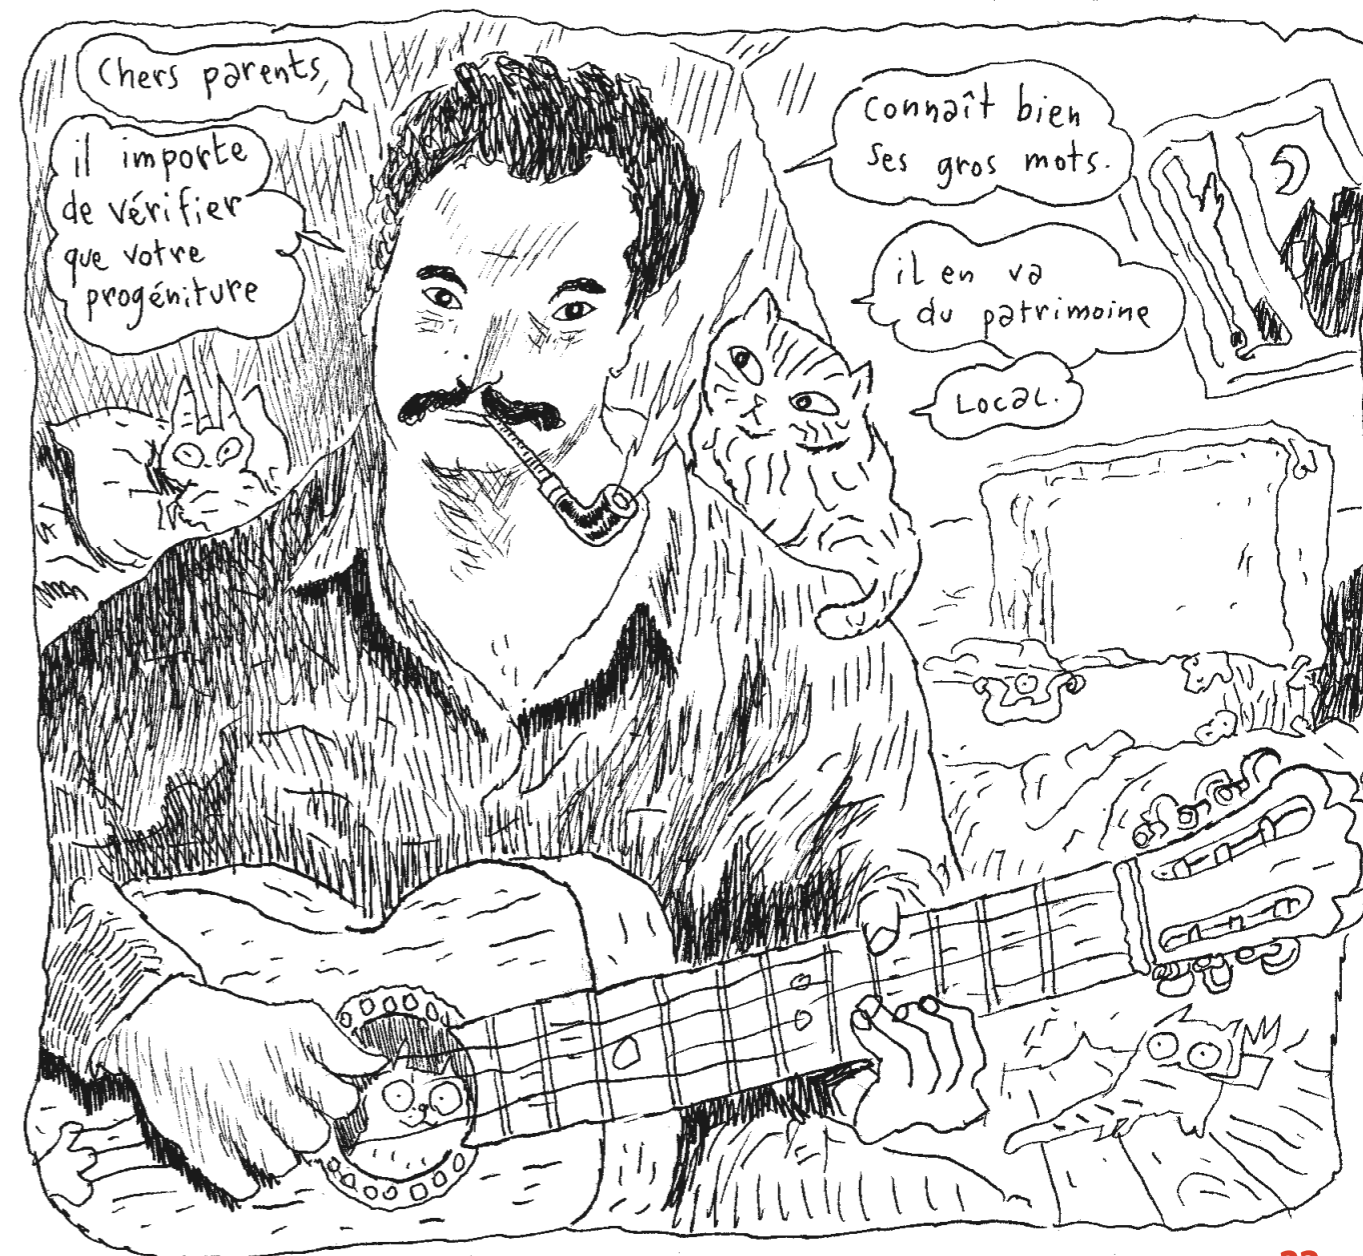 Chers parents,
il importe
de vérifier
que votre
progéniture
connaît bien
ses gros mots.
il en va
du patrimoine
Local.